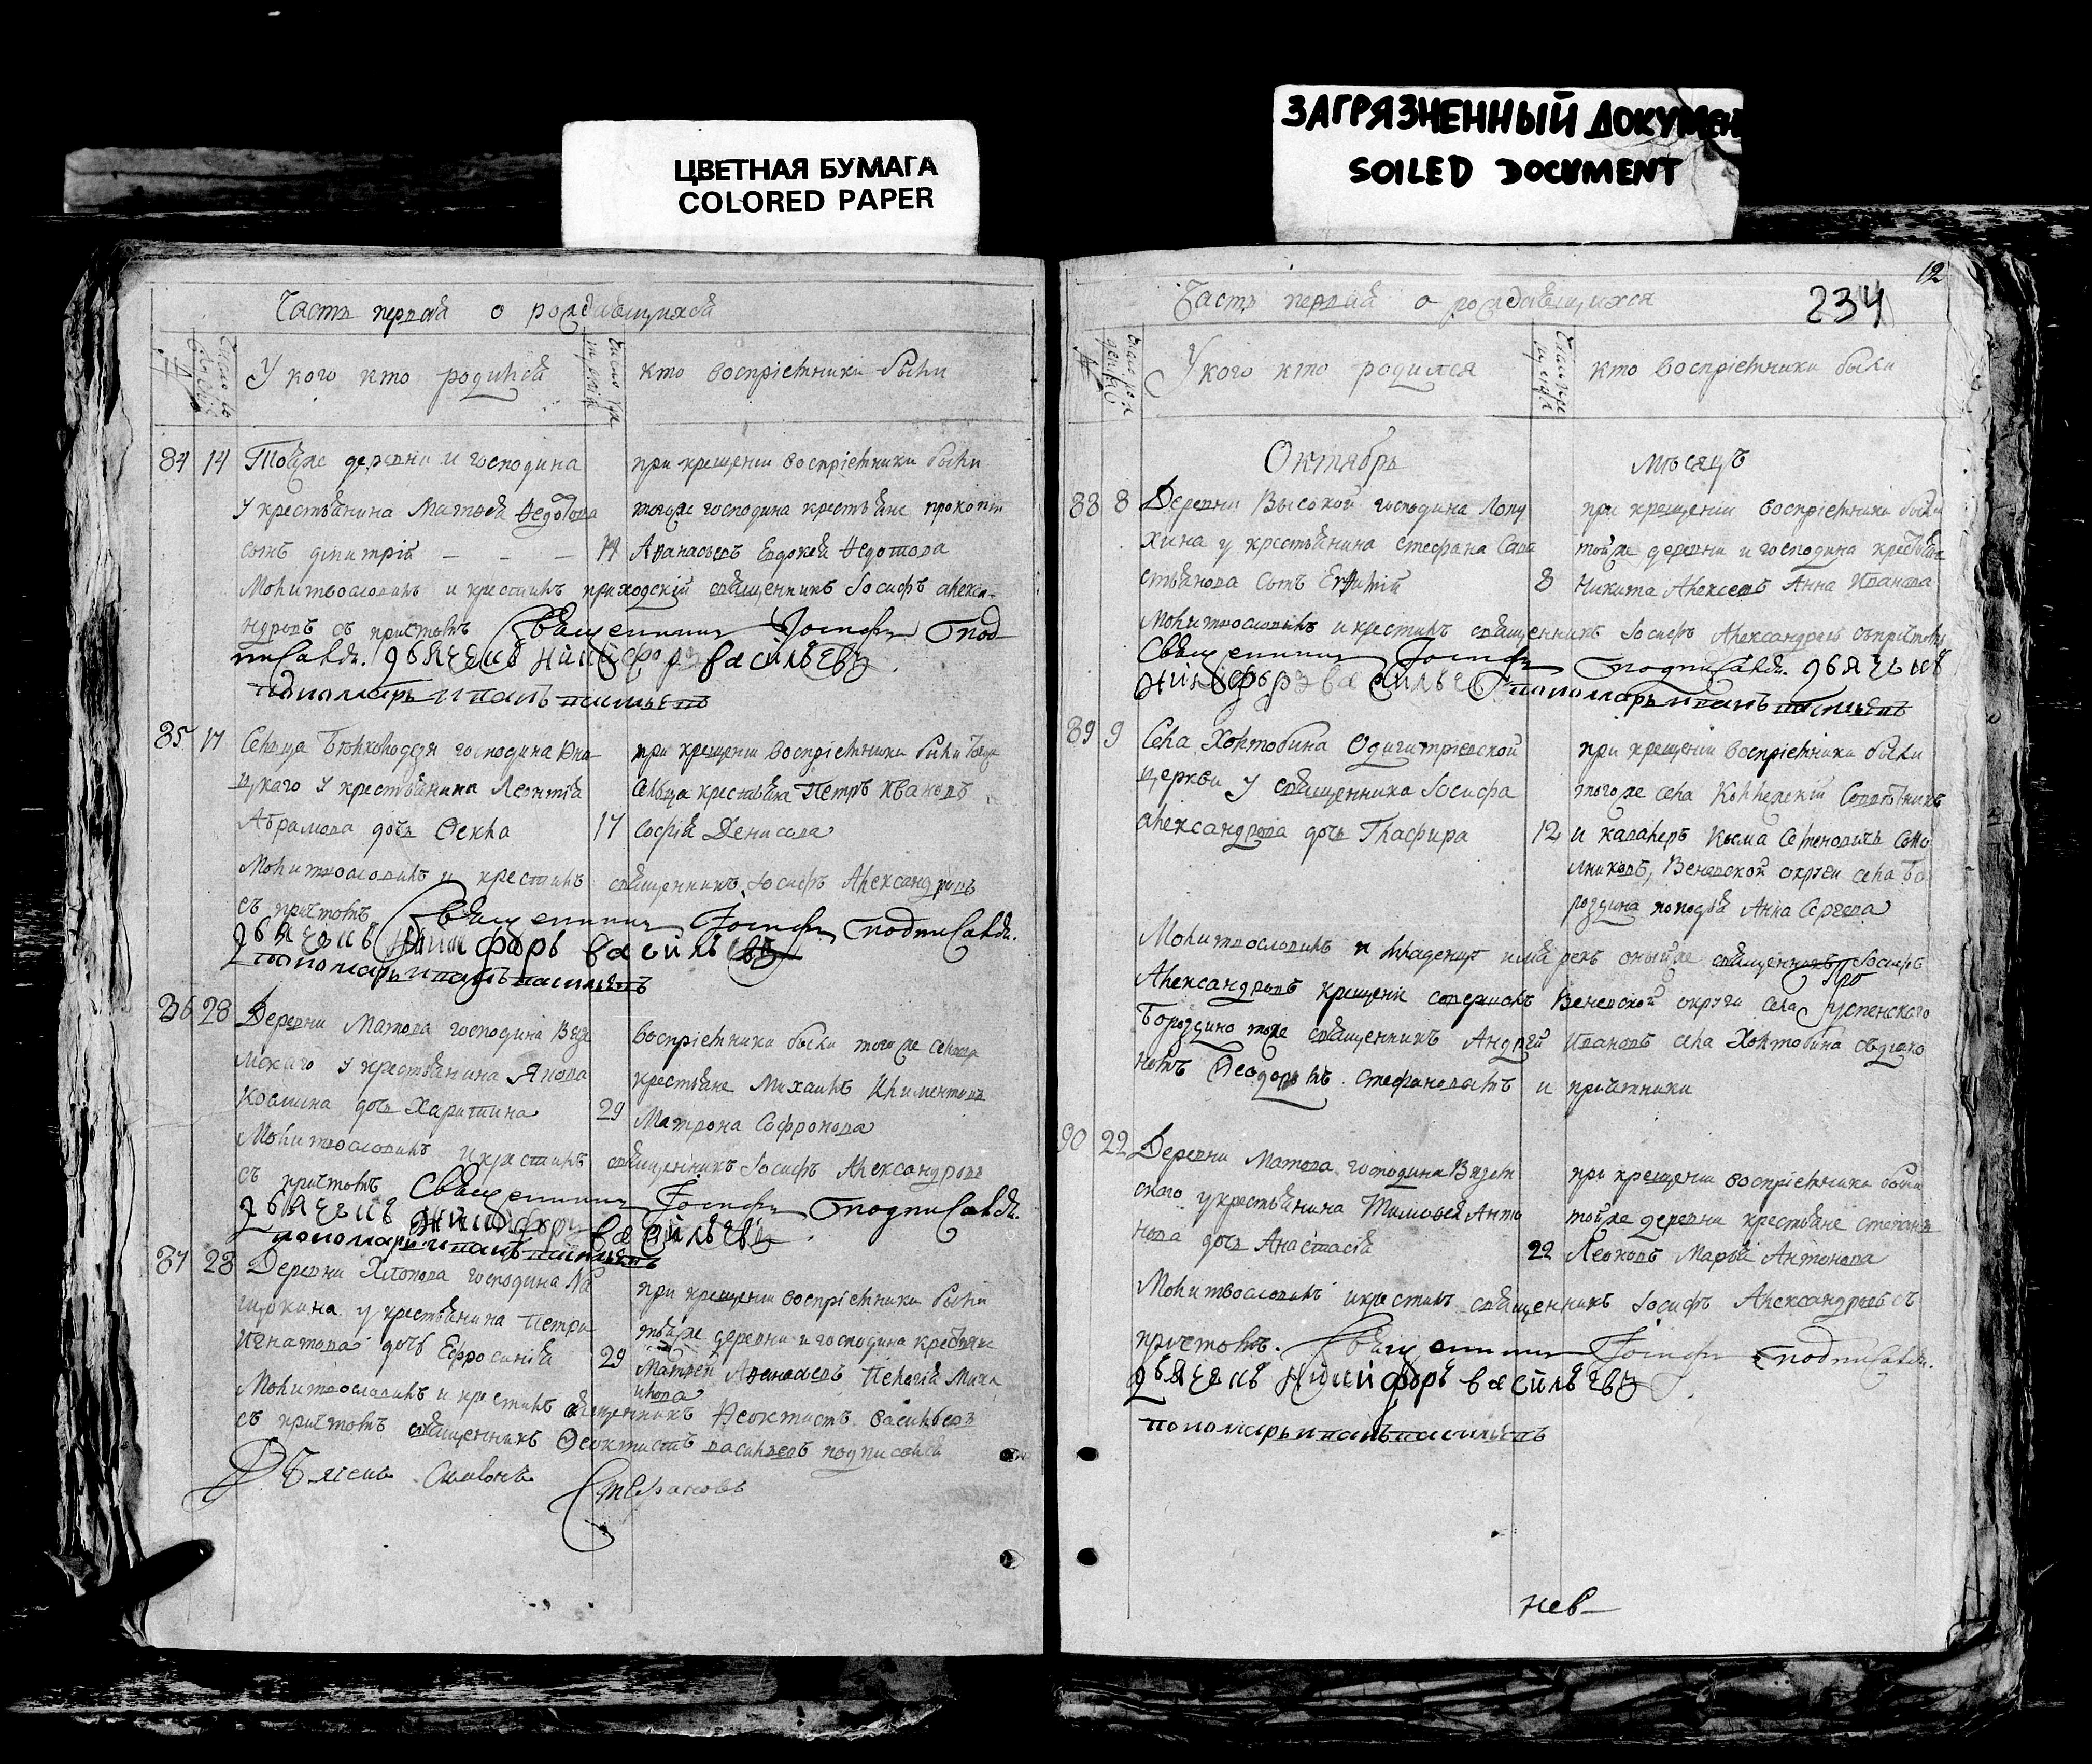 ЦВЕТНАЯ БУМАГА
COLORED PAPER
ЗАГРЯЗНЕННЫЙ ДОКУМЕН
SOILED DOCUMENT
Часть первая о рождающихся
У кого кто родился
кто восприемники были
84 14 Тойже деревни и господина
у крестьянина Матвея Федотова
сынъ Дмитрій — — — 14
при крещении восприемники были
тогоже господина крестьяне Прокопій
Афанасьевъ Евдокея Федотова
Молитвословилъ и крестилъ приходскій священникъ Іосифъ Алекса-
ндровъ съ причтомъ Священникъ Іосифъ подписался. дьяченъ Никифоръ Васильевъ
пономарь иванъ васильевъ
85 17 Сельца господина
у крестьянина Леонтія
Абрамова дочь Фекла 17
при крещении восприемники были
сельца крестьяня Петръ Ивановъ
Софія Денисова
Молитвословилъ и крестилъ священникъ Іосифъ Александровъ
съ причтомъ Священникъ Іосифъ подписался.
дьяченъ Никифоръ Васильевъ
пономарь иванъ васильевъ
86 28 Деревни Матова господина Вязе
мскаго у крестьянина Якова
Козмина дочь Харитина 29
восприемники были тогоже сельца
крестьяне Михаилъ Климентовъ
Матрона Софронова
Молитвословилъ и крестилъ священникъ Іосифъ Александровъ
съ причтомъ Священникъ Іосифъ подписался.
дьяченъ Никифоръ Васильевъ
пономарь иванъ васильевъ
87 28 Деревни Хлопова господина На
щокина у крестьянина Петра
Игнатова дочь Ефросинія 29
при крещении восприемники были
тойже деревни и господина крестьяне
Матвей Афанасьевъ Пелагія Миха
илова
Молитвословилъ и крестилъ священникъ Феоктистъ Васильевъ
съ причтомъ священникъ Феоктистъ Васильевъ подписался
Дьячекъ Симеонъ Стефановъ
12
234
Часть первая о рождающихся
У кого кто родился
кто восприемники были
Октябрь Мѣсяцъ
88 8 Деревни Высокой господина Лопу
хина у крестьянина Стефана Сава
стьянова сынъ Евфимій 8
при крещении восприемники были
тойже деревни и господина крестьяне
Никита Алексеевъ Анна Иванова
Молитвословилъ и крестилъ священникъ Іосифъ Александровъ съ причтомъ
Священникъ Іосифъ подписался. дьяченъ
Никифоръ Васильевъ пономарь иванъ васильевъ
89 9 Села Хонтобина Одигитріевской
церкви у священника Іосифа
Александрова дочь Глафира 12
при крещении восприемники были
тогоже села Коллежскій Советникъ
и кавалеръ
Веневской округи села Бо
роздина попадья Анна Сергеева
Молитвословилъ и младенцу имя рекъ оныйже священникъ Іосифъ
Александровъ крещение совершилъ Веневской округи села Успенского
Бороздино тоже священникъ Андрей Ивановъ села Хонтобина съ дьяко
номъ Феодоромъ Стефановымъ и причетники
90 22 Деревни Матова господина Вязем
скаго у крестьянина Тимофея Анто
нова дочь Анастасія 22
при крещении восприемники были
тойже деревни крестьяне Степанъ
Леоновъ Марья Антонова
Молитвословилъ и крестилъ священникъ Іосифъ Александровъ съ
причтомъ. Священникъ Іосифъ подписался.
дьяченъ Никифоръ Васильевъ
пономарь иванъ васильевъ